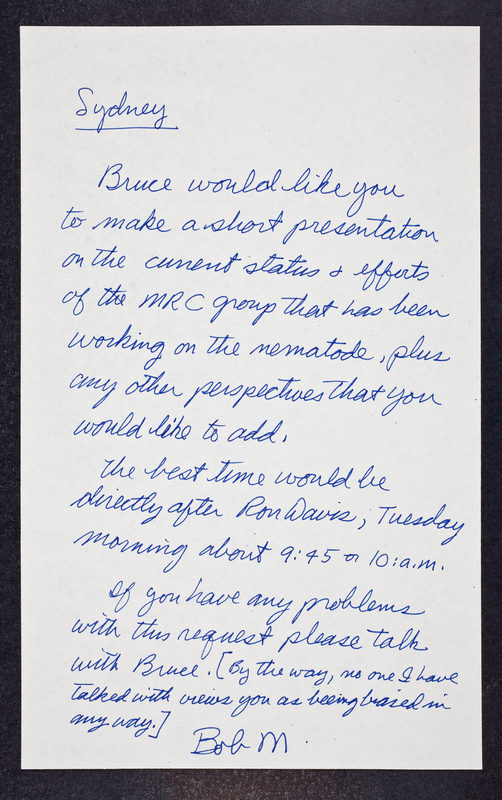 Sydney
Bruce would like you
to make a short presentation
on the current status & efforts
of the MRC group that has been
working on the nematode, plus
any other perspectives that you
would like to add.
The best time would be
directly after Ron Davis, Tuesday
morning about 9:45 or 10:a.m.
If you have any problems
with this request please talk
with Bruce. [By the way, no one I have
talked with views you as being biased in
any way.]
Bob M